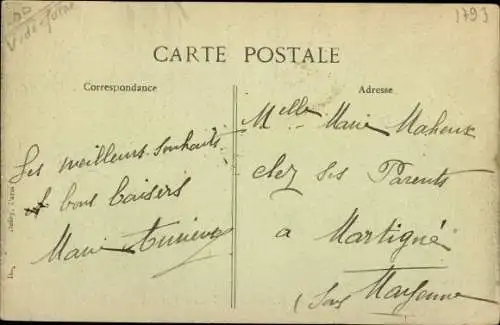 1793
CARTE POSTALE
Correspondance
Adresse
Les meilleurs souhaits
et bons baisers
Marie
Melle Marie Maheux
chez ses Parents
a Martigné
(sous Mayenne